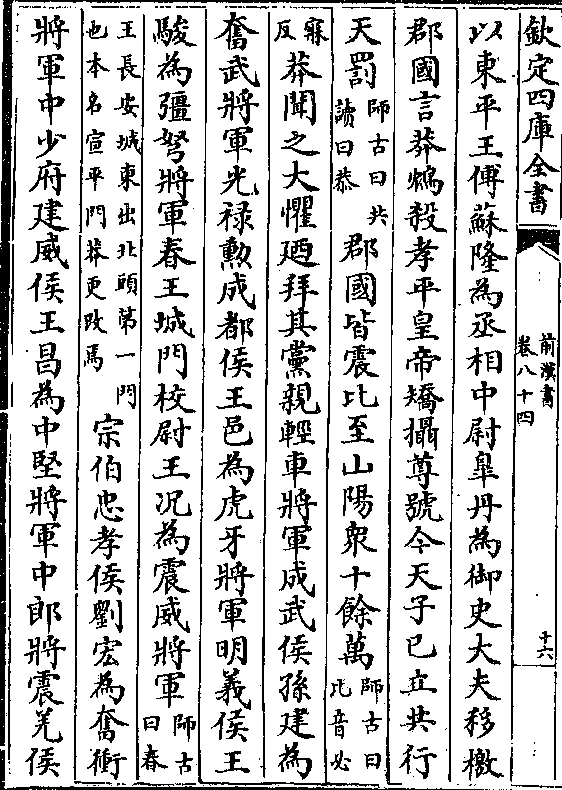 欽定四庫全書
前漢書
卷八十四
十六
以東平王傅蘇隆為丞相中尉臯丹為御史大夫移檄
郡國言莽鴆殺孝平皇帝矯攝尊號今天子已立共行
天罰師古曰共讀曰恭郡國皆震比至山陽衆十餘萬師古曰比音必
寐反莽聞之大懼廼拜其黨親輕車將軍成武侯孫建為
奮武將軍光禄勲成都侯王邑為虎牙將軍明義侯王
駿為彊弩將軍春王城門校尉王况為震威將軍師古曰春
王長安城東出北頭第一門也本名宣平門莽更改焉宗伯忠孝侯劉宏為奮衝
將軍中少府建威侯王昌為中堅將軍中郎將震羌侯